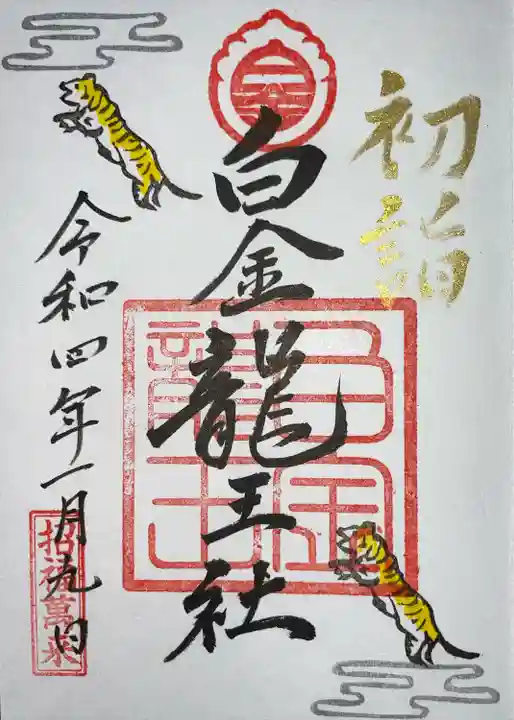 初詣
白金龍王社
白金
龍王
令和四年一月九日
招福萬来